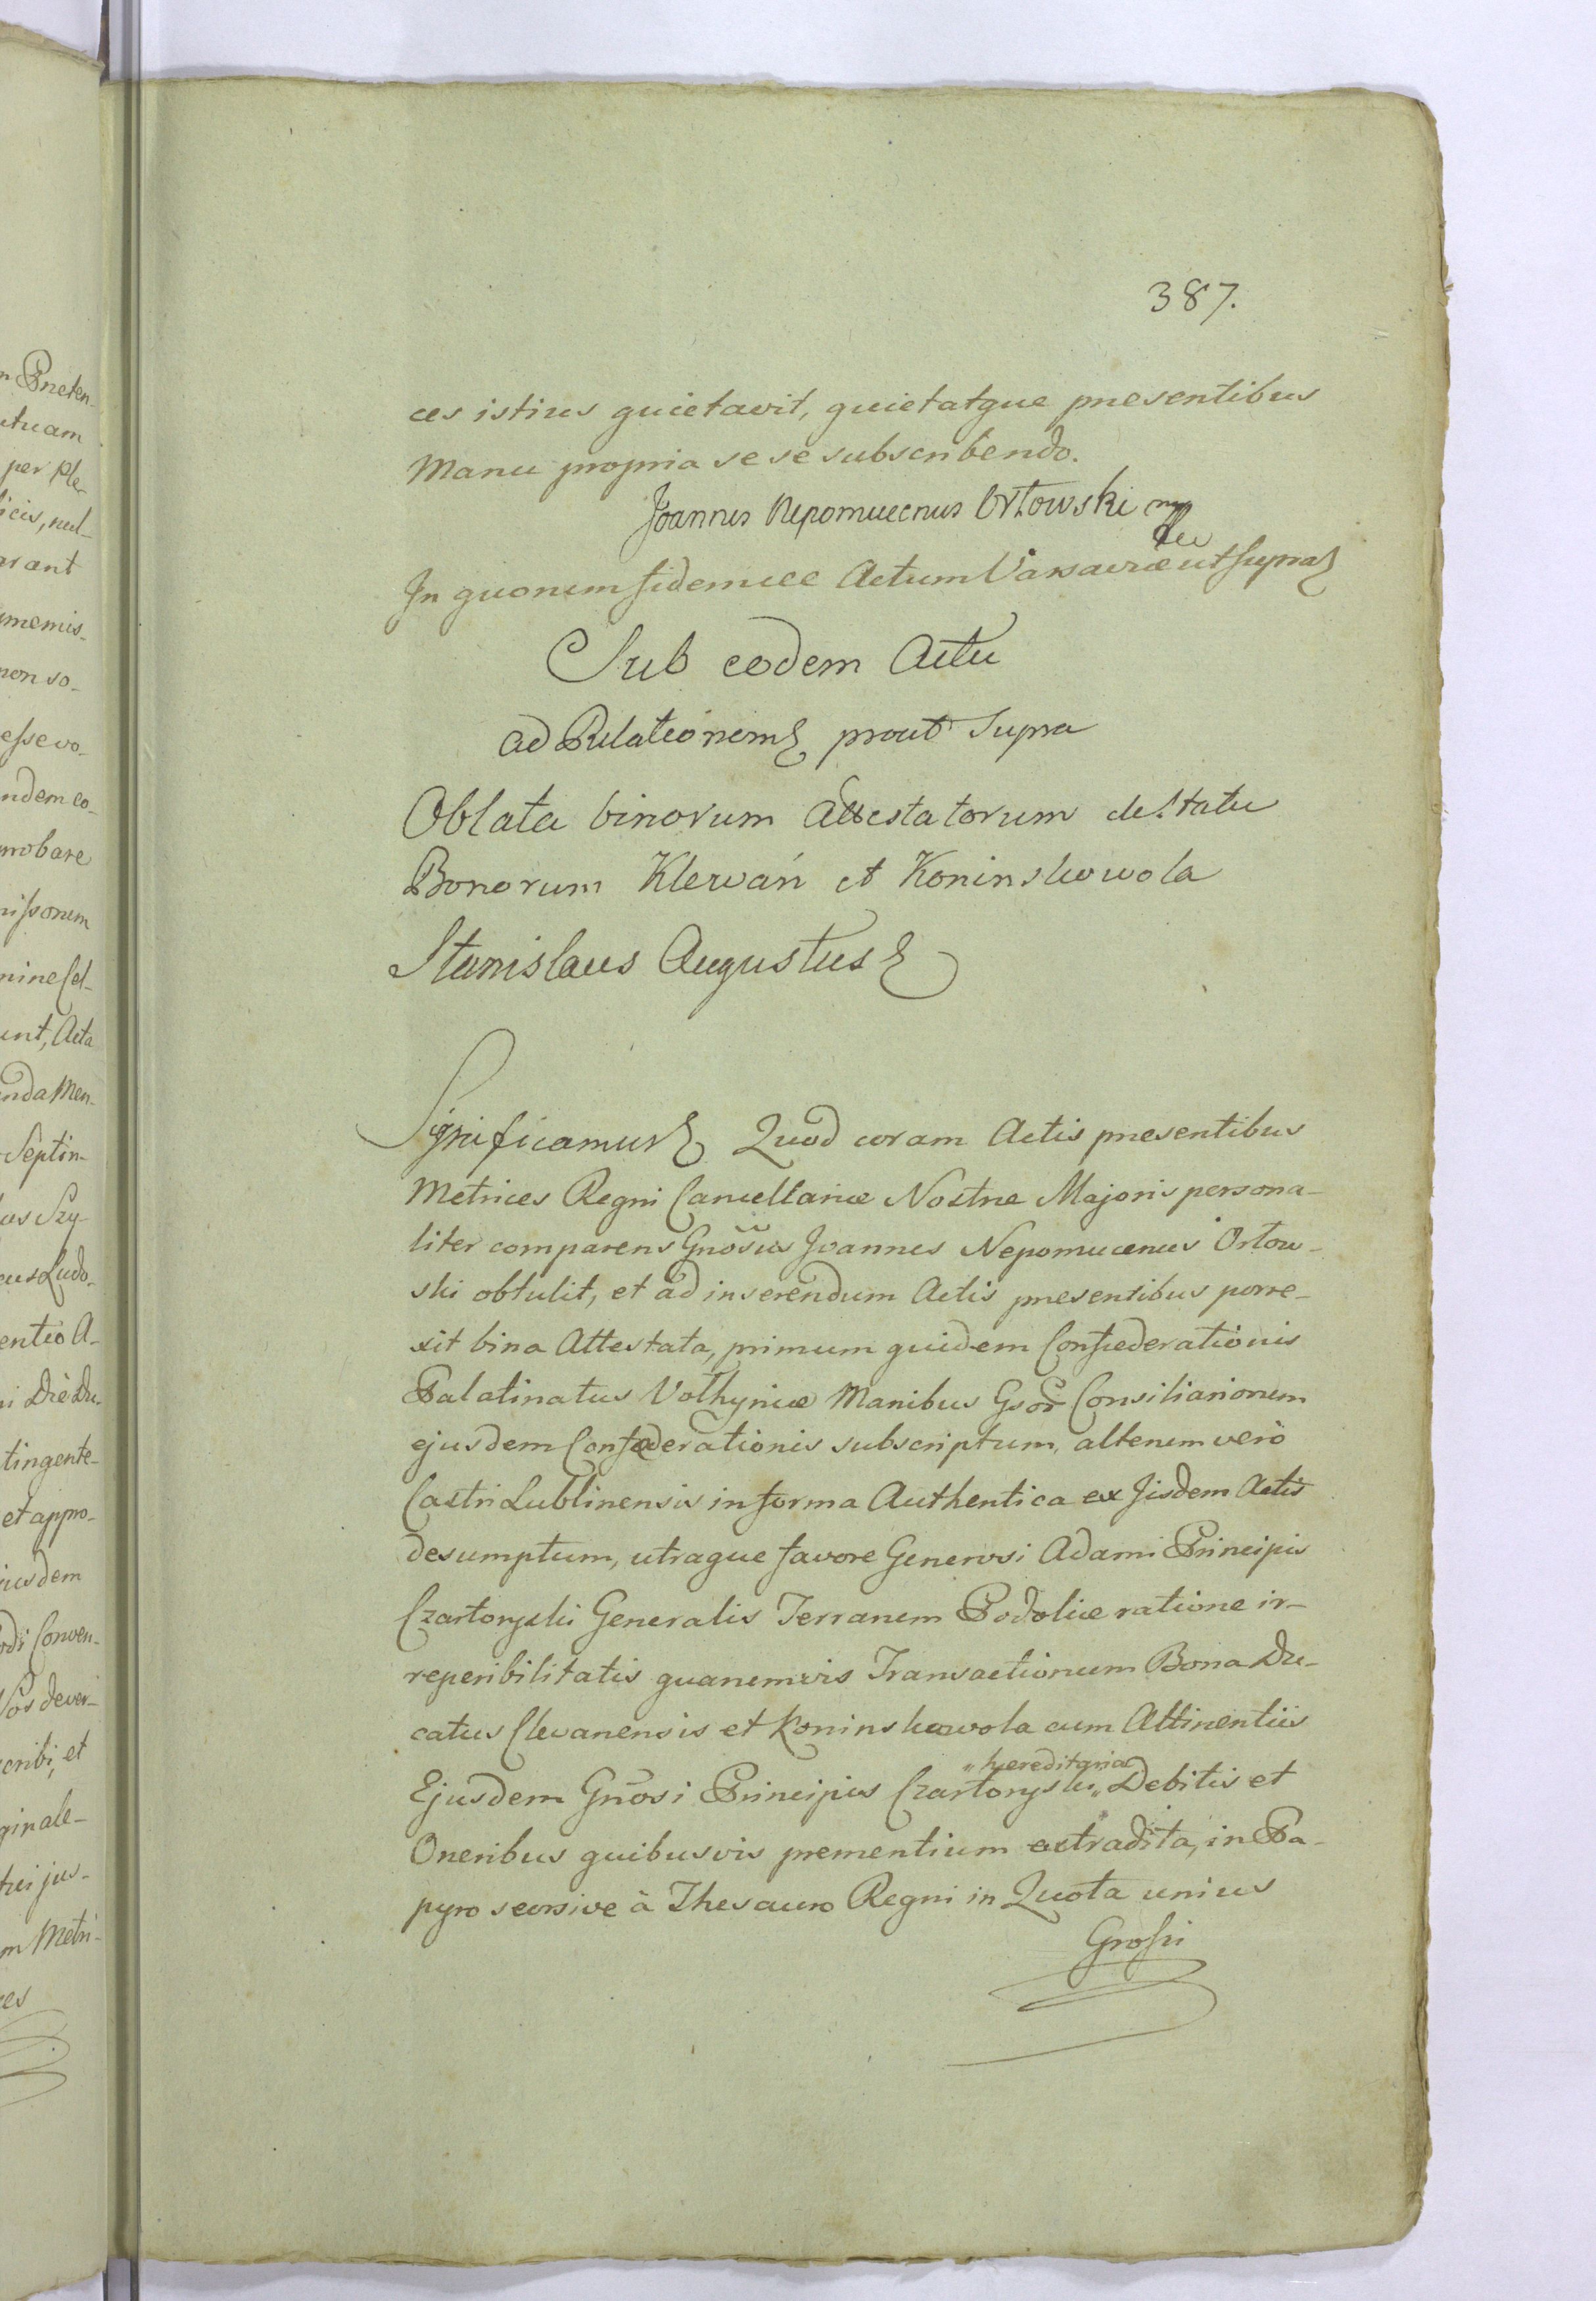 387.
ces istius quietavit, quietatque presentibus
Manu propria se se subscribendo.
Joannes Nepomucenus Orłowski mp
In quorum fidem ut Actum Varsaviæ ut supra
Sub eodem Actu
ad Relationem prout Supra
Oblata binorum Attestatorum de Statu
Bonorum Klewań et Koninskowola
Stanislaus Augustus
Significamus Quod coram Actis presentibus
Metrices Regni Cancellariæ Nostræ Majoris persona-
liter comparens Gnosus Joannes Nepomucenus Orłow-
ski obtulit, et ad inserendum Actis presentibus porre-
xit bina Attestata, primum quidem Confœderationis
Palatinatus Volhyniæ Manibus Gsor Consiliariorum
ejusdem Confœderationis subscriptum, alterum verò
Castri Lublinensis in forma Authentica ex Jisdem Actis
desumptum, utraque favore Generosi Adami Principis
Czartoryski Generalis Terrarum Podoliæ ratione ir-
reperibilitatis quarumvis Transactionum Bona Du-
catus Clevanensis et Koninskowola cum Attinentiis
„hereditaria
Ejusdem Gnosi Principis Czartoryski„ Debitis et
Oneribus quibusvis prementium extradita, in Pa-
pyro scorsive à Thesauro Regni in Quota unius
Grossi
n Preten-
utuam
per Ple-
licis, nul-
arant
non so-
esse vo-
ndem co-
probare
nine Cel-
unt, Acta
enda Men-
Septin-
us Szy-
cus Ludo-
entio A-
ni Die Du-
tingente-
et appro-
jusdem
odi Conven-
cribi, et
ginale-
m Metri-
ces